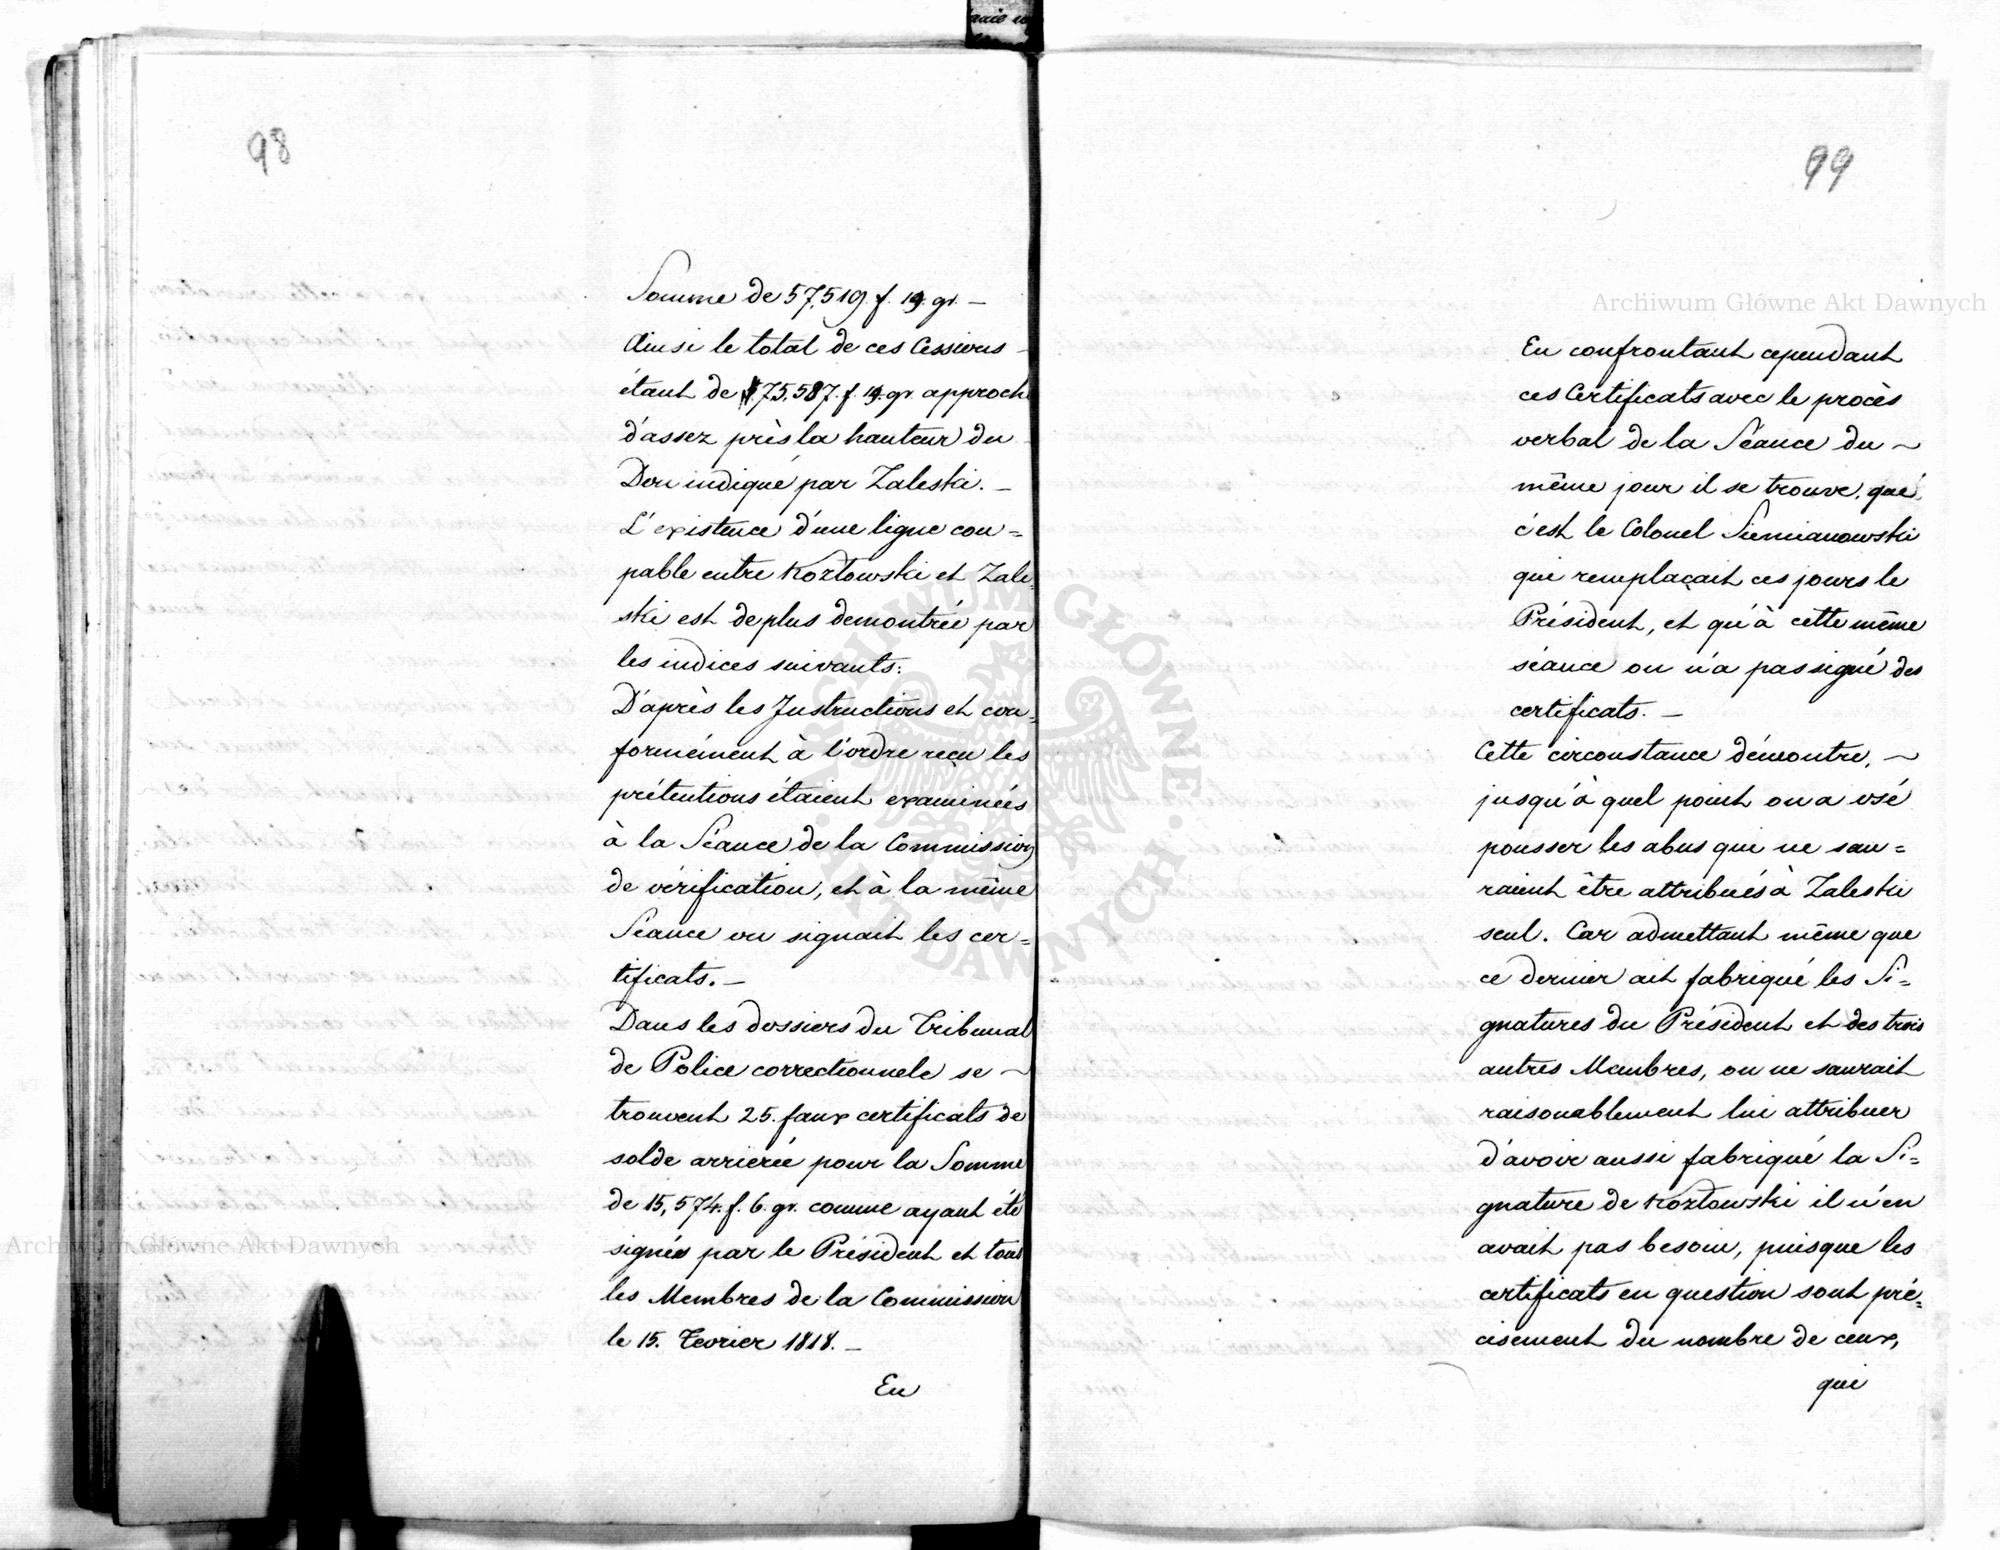 98
Somme de 57,519. f. 19. gr. —
Ainsi le total de ces Cessions —
étant de 75,587. f. 19. gr. approche
d'assez près la hauteur du
Don indiqué par Zaleski. —
L'existence d'une ligue cou=
pable entre Kozłowski et Zale=
ski est de plus demontrée par
les indices suivants:
D'après les Instructions et con=
formément à l'ordre reçu les
prétentions étaient examinées
à la Séance de la Commission
de vérification, et à la même
Séance on signait les cer=
tificats. —
Dans les dossiers du Tribunal
de Police correctionnele se ~
trouvent 25. faux certificats de
solde arrierée pour la Somme
de 15,574. f. 6. gr. comme ayant été
signés par le Président et tous
les Membres de la Commission
le 15. Fevrier 1818. —
En
99
En confrontant cependant
ces Certificats avec le procès
verbal de la Séance du ~
même jour il se trouve, que
c'est le Colonel Siemianowski
qui remplaçait ces jours le
Président, et qu'à cette même
séance on n'a pas signé des
certificats. —
Cette circonstance démontre, ~
jusqu'à quel point on a osé
pousser les abus qui ne sau=
raient être attribués à Zaleski
seul. Car admettant même que
ce dernier ait fabriqué les Si=
gnatures du Président et des trois
autres Membres, on ne saurait
raisonablement lui attribuer
d'avoir aussi fabriqué la Si=
gnature de Kozłowski il n'en
avait pas besoin, puisque les
certificats en question sont pré=
cisement du nombre de ceux,
qui
Archiwum Główne Akt Dawnych
Archiwum Główne Akt Dawnych
ARCHIWUM GŁÓWNE · AKT DAWNYCH ·